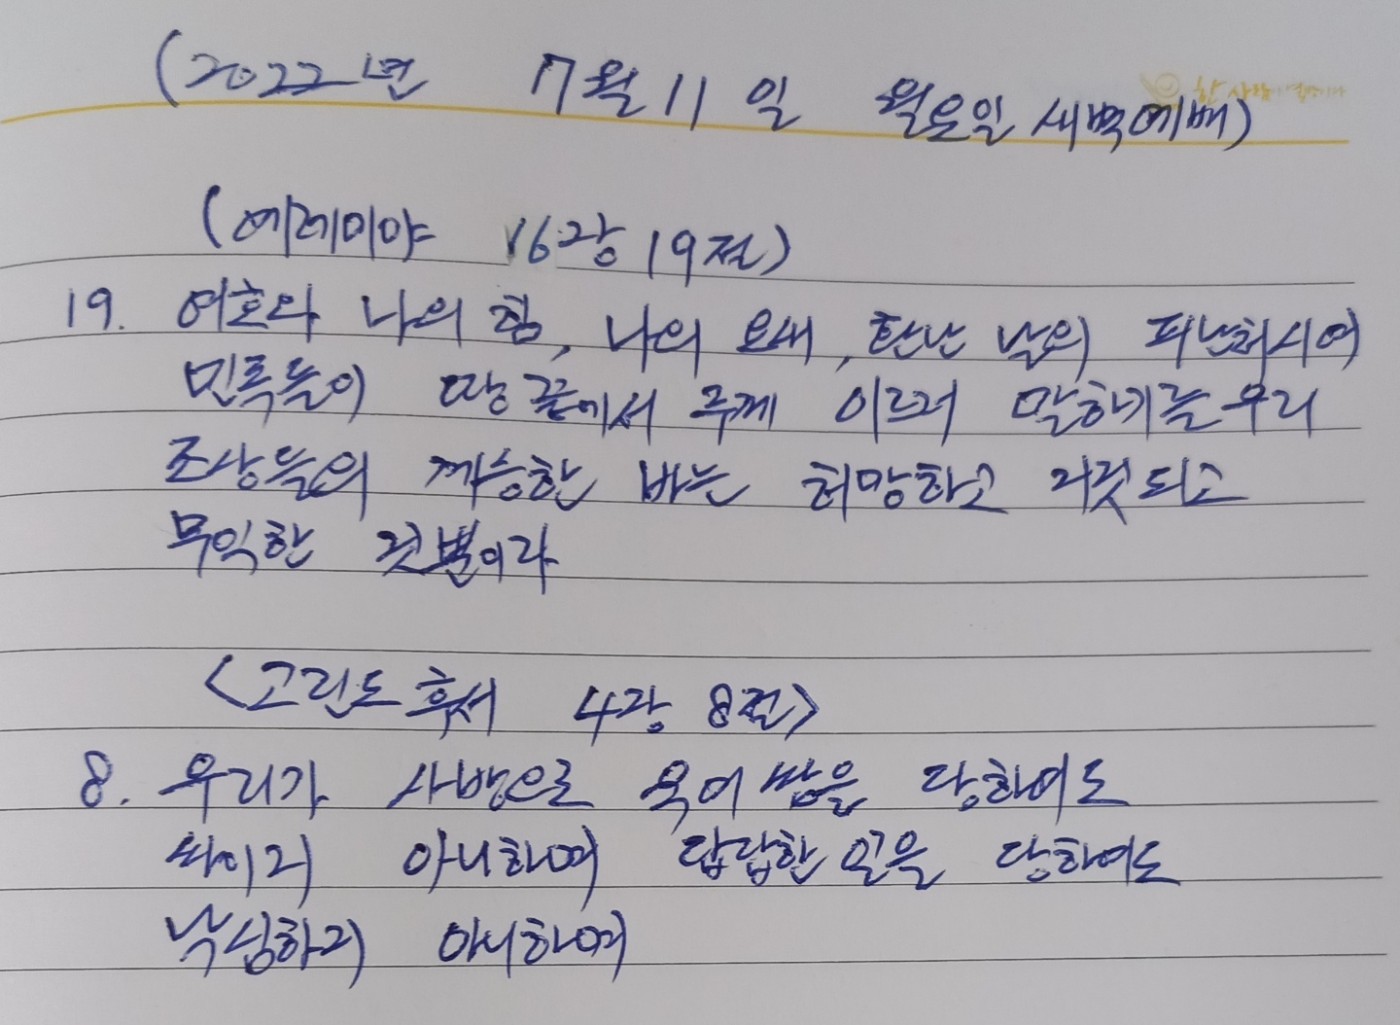 (2022년 7월 11일 월요일 새벽예배)
(예레미야 16장 19절)
19. 여호와 나의 힘, 나의 요새, 환난 날의 피난처시여
민족들이 땅 끝에서 주께 이르러 말하기를 우리
조상들의 계승한 바는 허망하고 거짓되고
무익한 것뿐이라
<고린도후서 4장 8절>
8. 우리가 사방으로 욱여쌈을 당하여도
싸이지 아니하며 답답한 일을 당하여도
낙심하지 아니하며